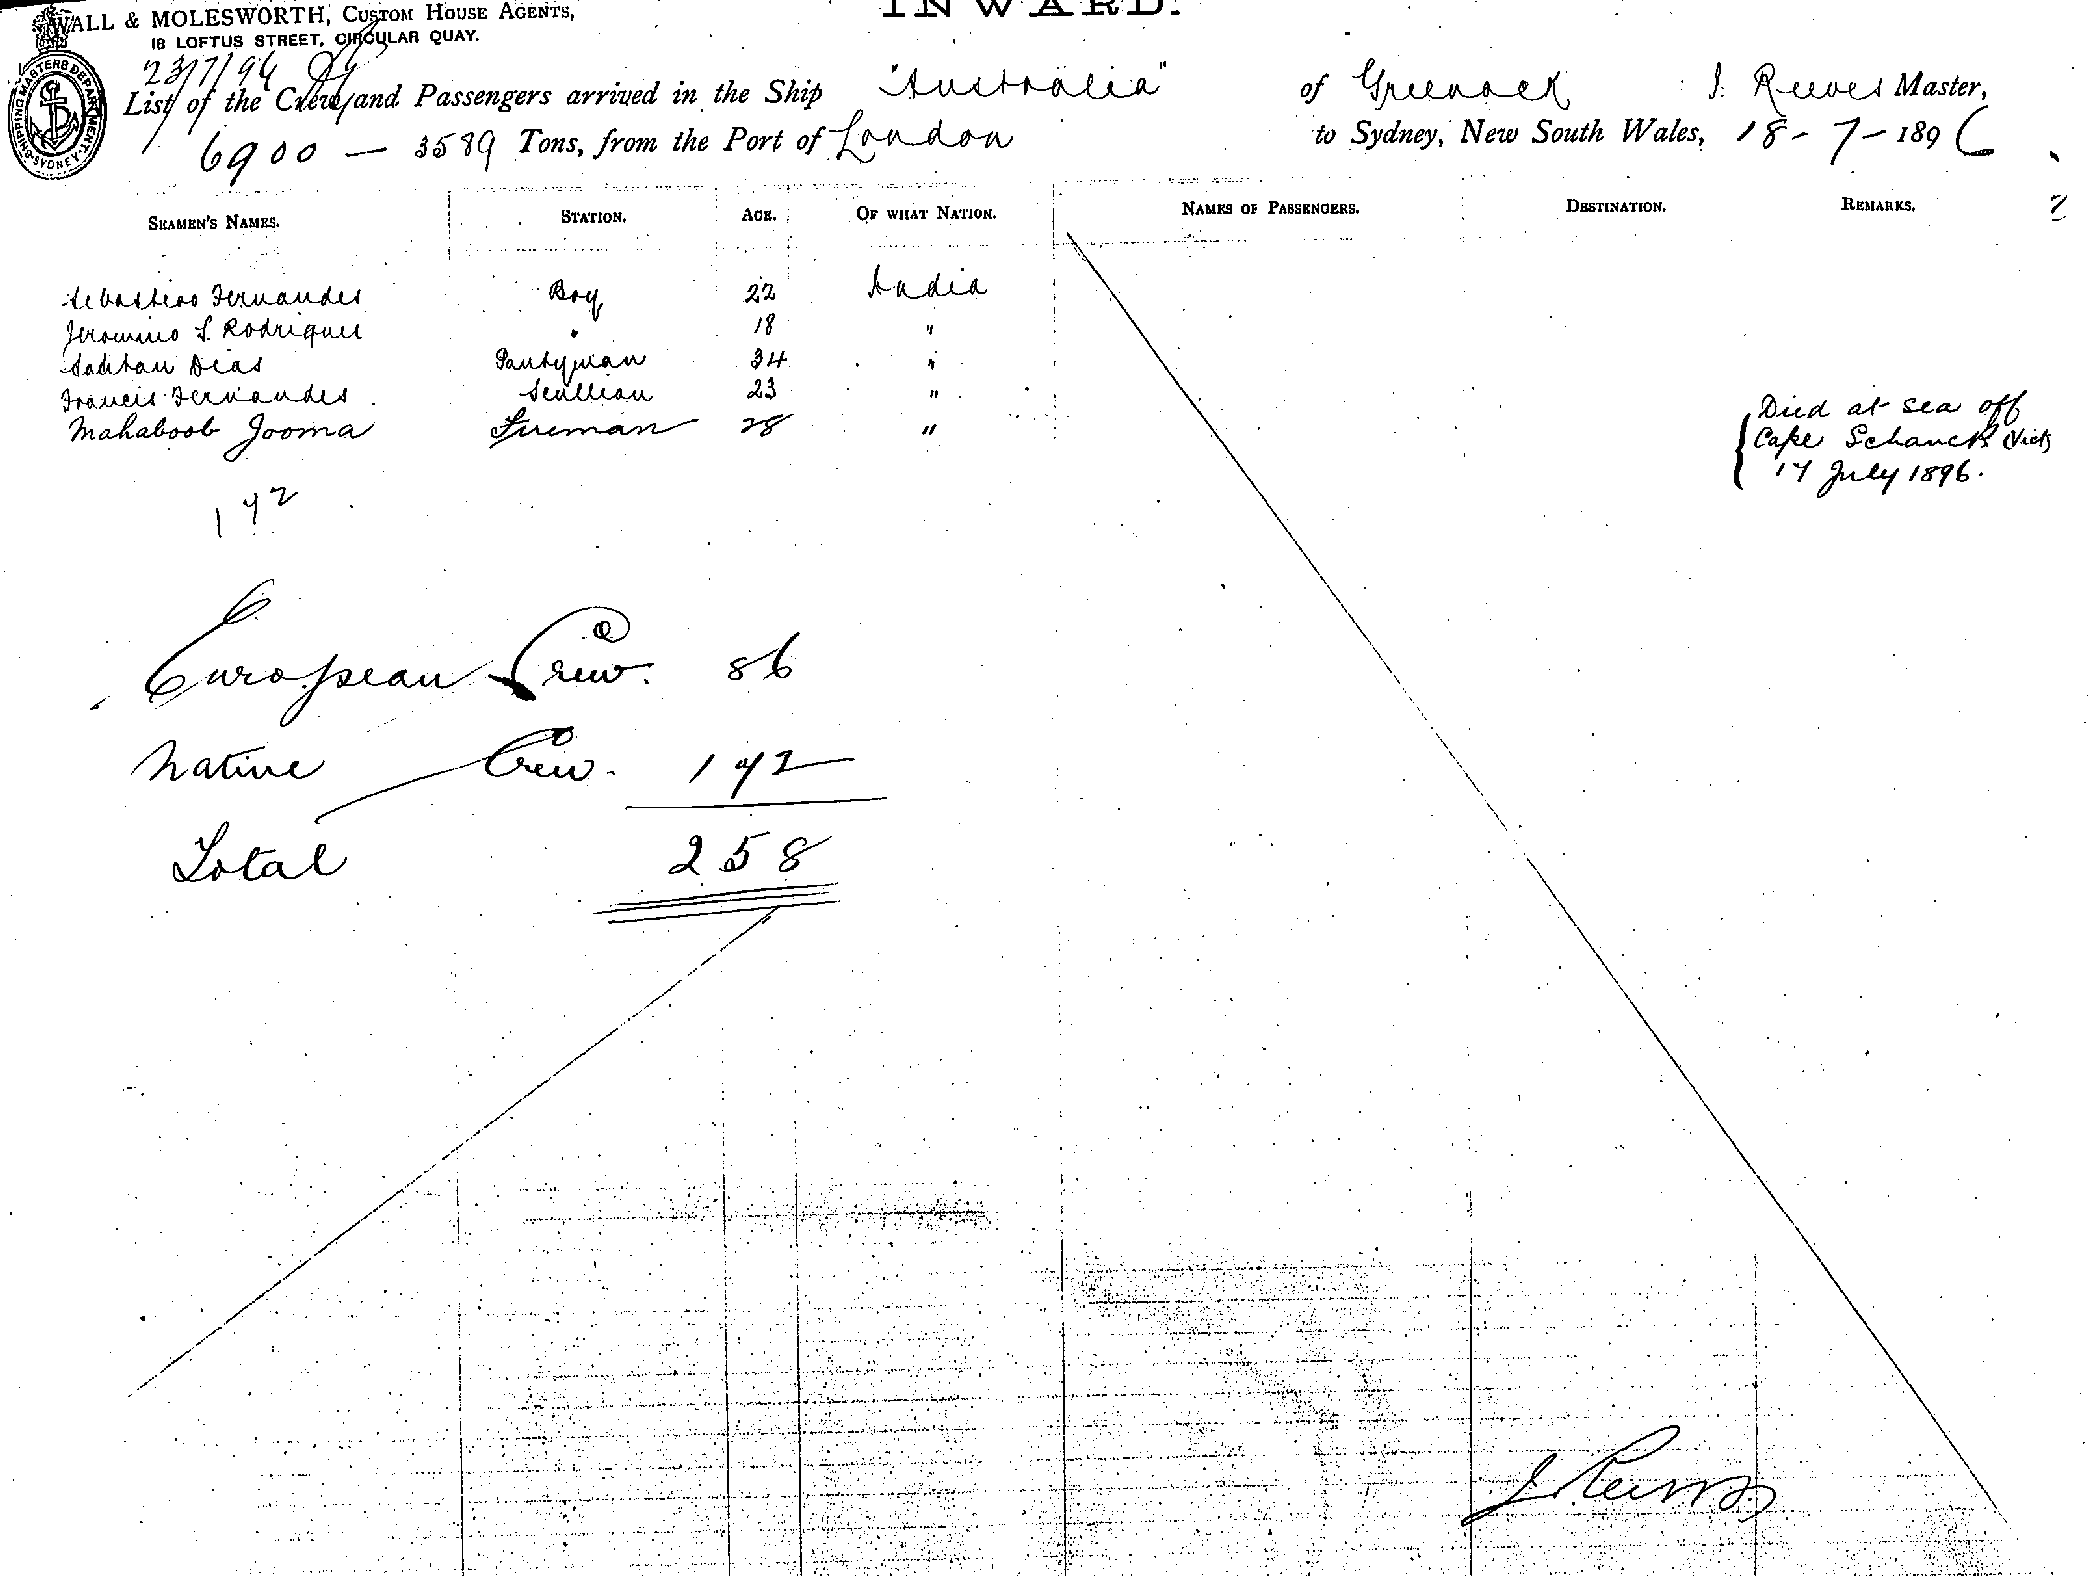 INWARD.
WALL & MOLESWORTH, CUSTOM HOUSE AGENTS,
18 LOFTUS STREET, CIRCULAR QUAY.
SHIPPING MASTERS DEPARTMENT SYDNEY
23/7/96
List of the Crew and Passengers arrived in the Ship "Australia" of Greenock J. Reeves Master,
6900 — 3589 Tons, from the Port of London to Sydney, New South Wales, 18-7-1896
SEAMEN'S NAMES. STATION. AGE. OF WHAT NATION. NAMES OF PASSENGERS. DESTINATION. REMARKS.
Sebastiao Fernandes Boy 22 India
Jeronimo S. Rodrigues " 18 "
Dias Pantryman 34 "
Francis Fernandes Scullion 23 "
Mahaboob Jooma Fireman 28 " Died at sea off
Cape Schanck (Vict)
17 July 1896.
172
European Crew. 86
Native Crew. 172
Total 258
J Reeves